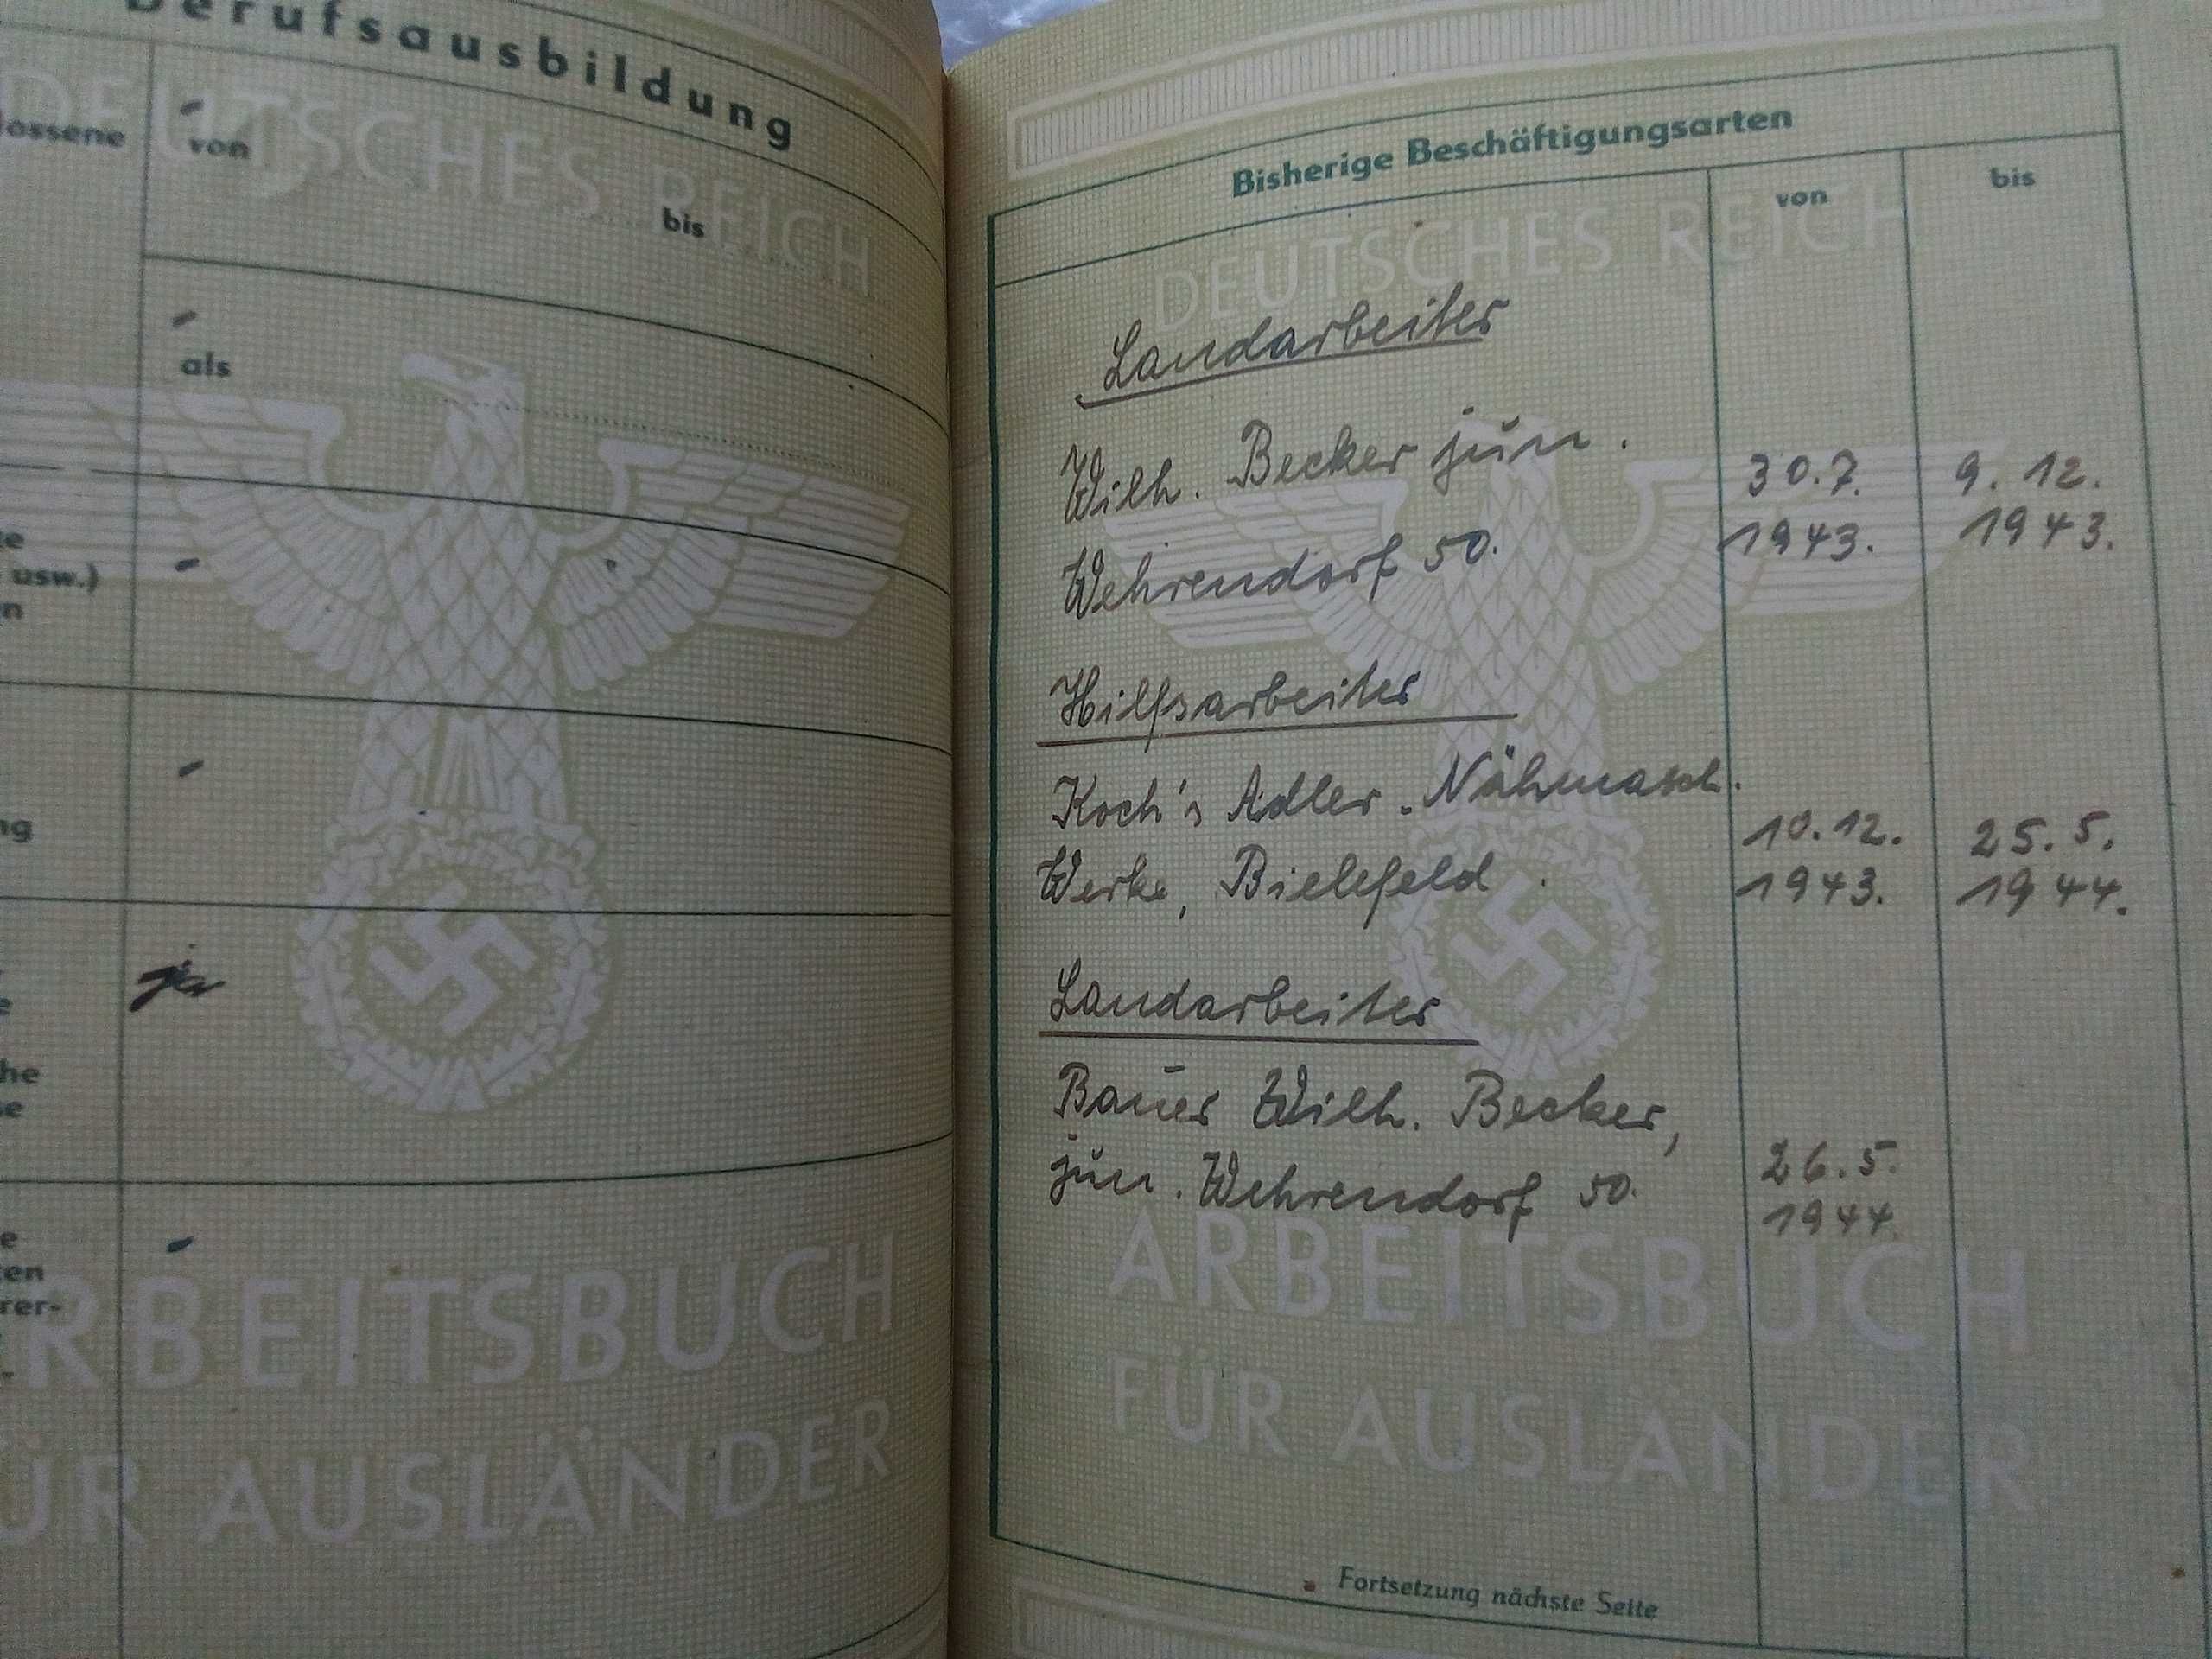 Berufsausbildung
von
bis
als
usw.)
ja
DEUTSCHES REICH
ARBEITSBUCH
FÜR AUSLÄNDER
Bisherige Beschäftigungsarten
von
bis
DEUTSCHES REICH
Landarbeiter
Wilh. Becker jun.
30.7. 9.12.
Wehrendorf 50.
1943. 1943.
Hilfsarbeiter
Koch's Adler-Nähmasch.
10.12. 25.5.
Werke, Bielefeld.
1943. 1944.
Landarbeiter
Bauer Wilh. Becker,
jun. Wehrendorf 50.
26.5.
1944
ARBEITSBUCH
FÜR AUSLÄNDER
Fortsetzung nächste Seite